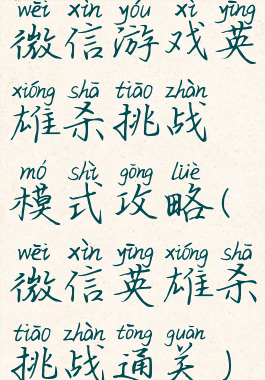 wēi xìn yóu xì yīng
微信游戏英
xióng shā tiāo zhàn
雄杀挑战
mó shì gōng lüè
模式攻略(
wēi xìn yīng xióng shā
微信英雄杀
tiāo zhàn tōng guān
挑战通关)